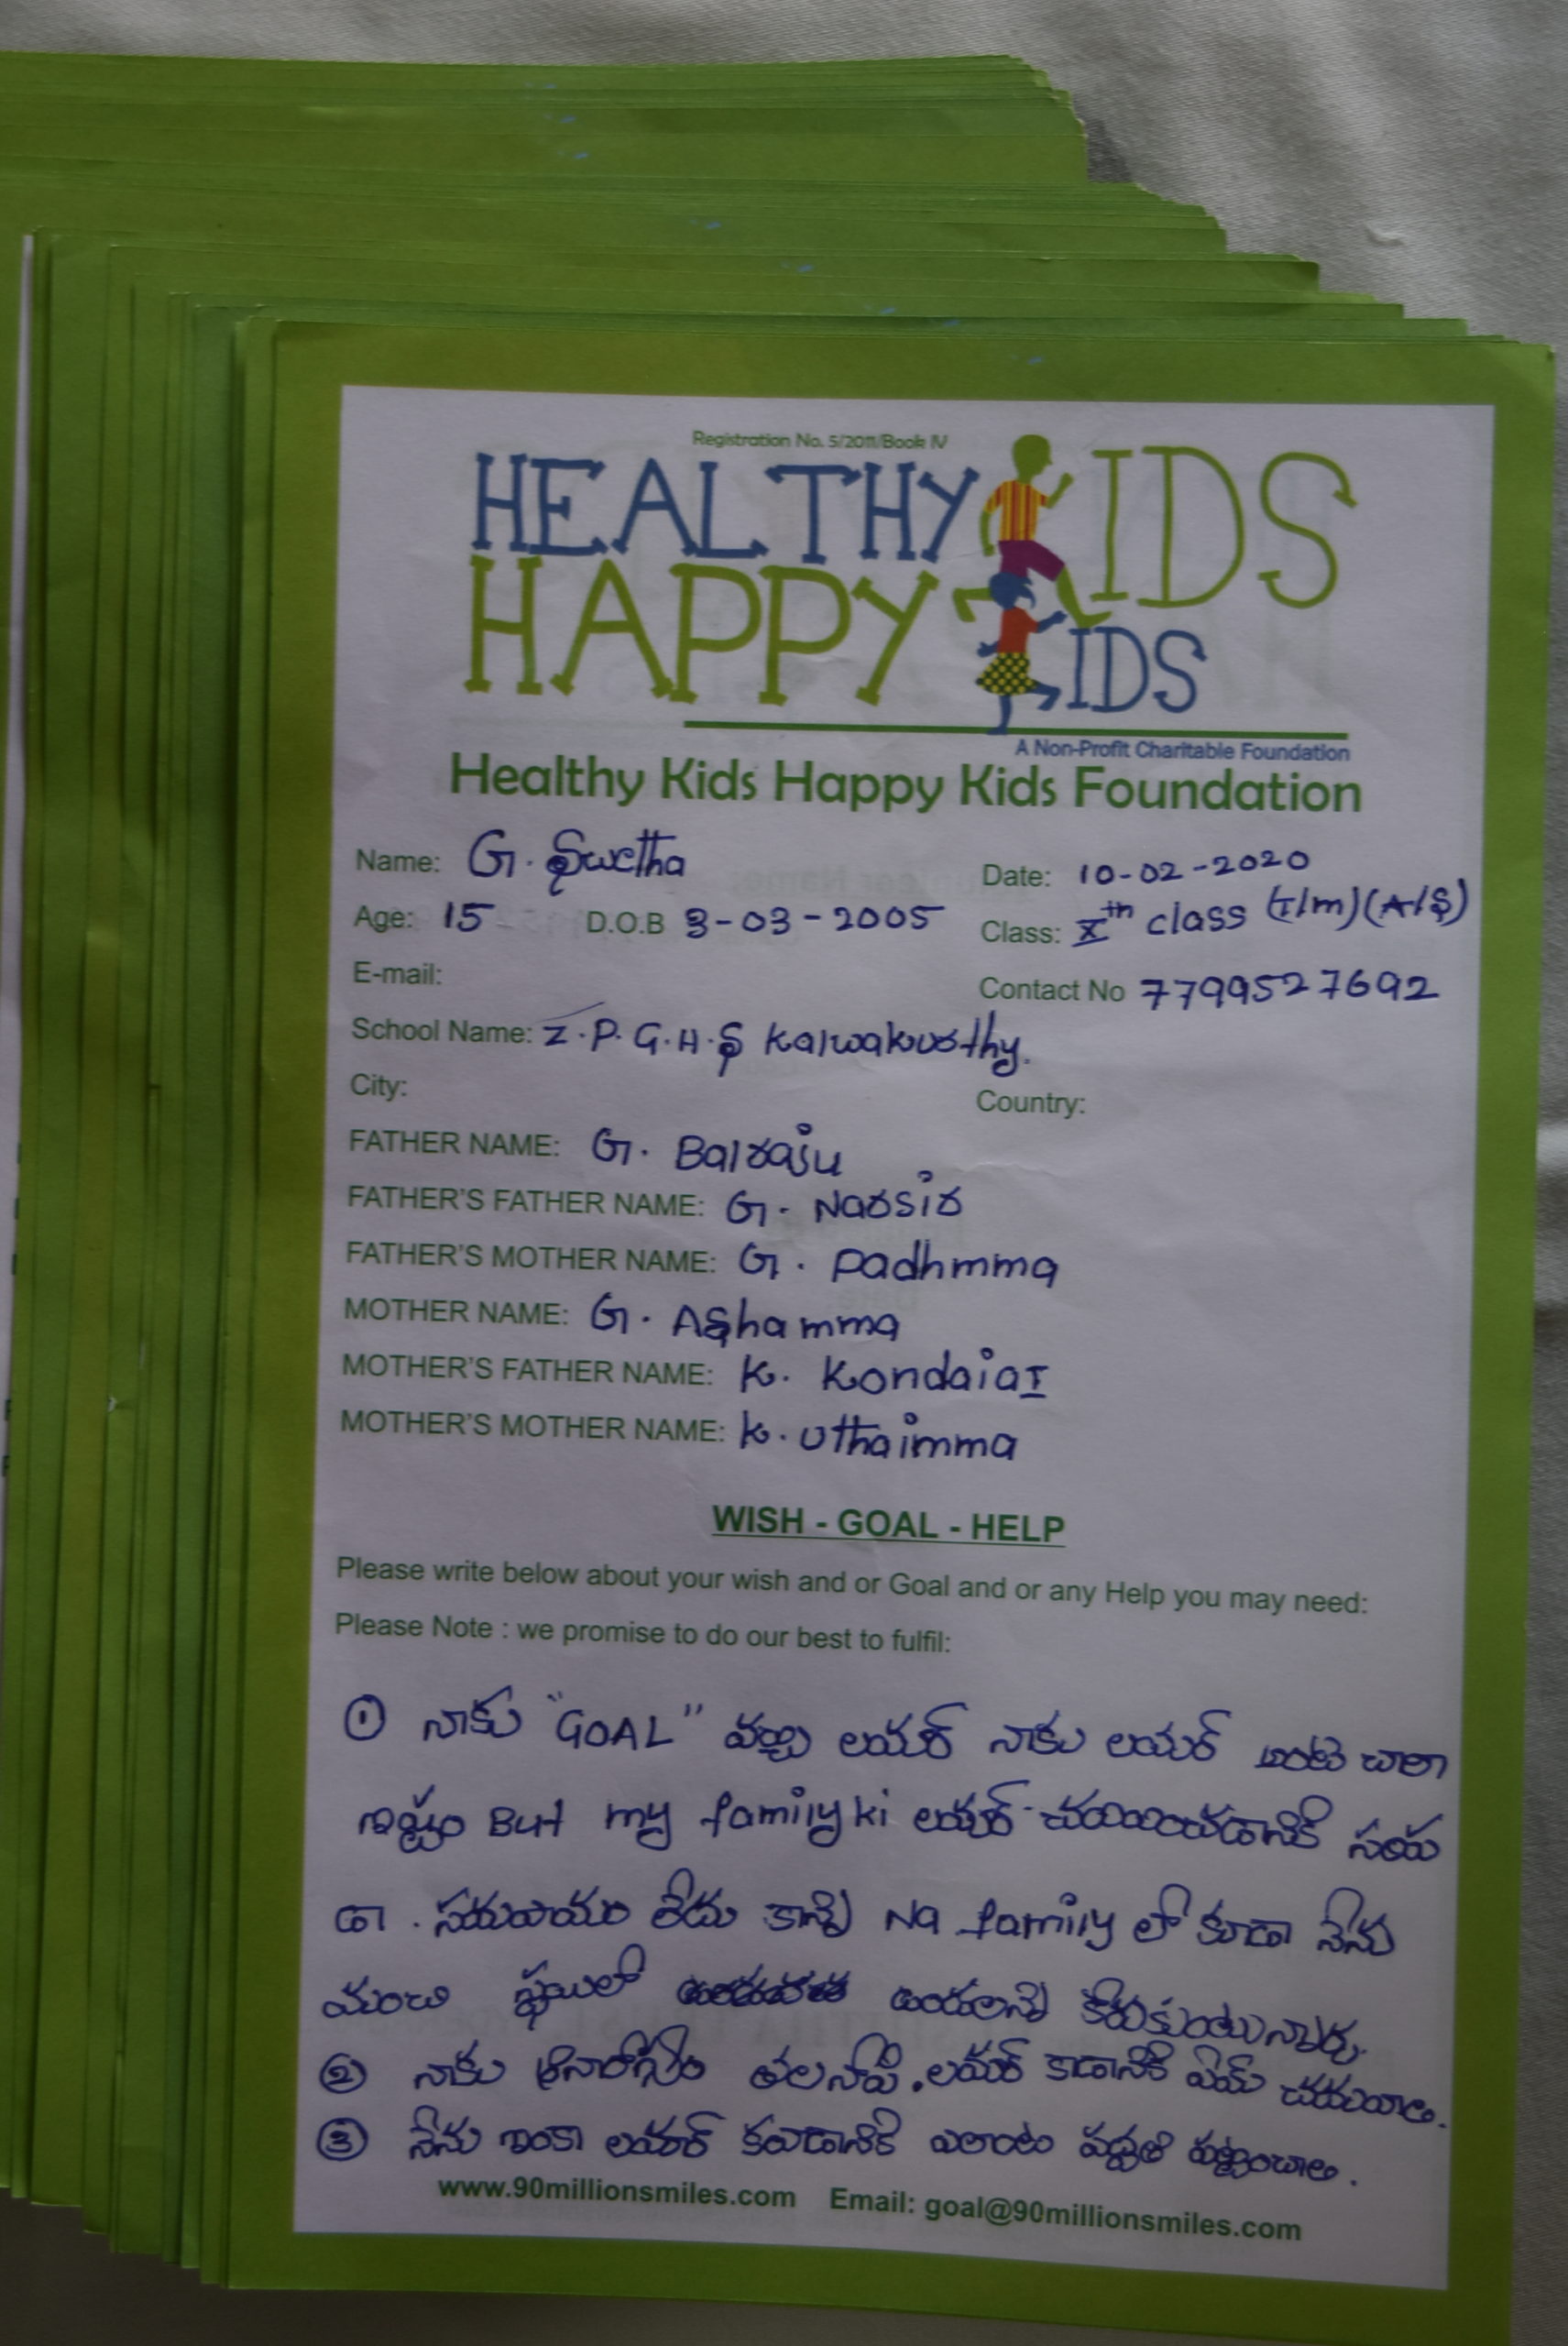 Registration No. 5/2011/Book IV
HEALTHY KIDS
HAPPY KIDS
A Non-Profit Charitable Foundation
Healthy Kids Happy Kids Foundation
Name: G. Swetha Date: 10-02-2020
Age: 15 D.O.B 3-03-2005 Class: Xth class (T/m) (A/S)
E-mail: Contact No 7799527692
School Name: Z.P.G.H.S Kalwakurthy.
City: Country:
FATHER NAME: G. Balraju
FATHER'S FATHER NAME: G. Narsir
FATHER'S MOTHER NAME: G. Padhmma
MOTHER NAME: G. Ashamma
MOTHER'S FATHER NAME: K. Kondaiai
MOTHER'S MOTHER NAME: K. Uthaimma
WISH - GOAL - HELP
Please write below about your wish and or Goal and or any Help you may need:
Please Note : we promise to do our best to fulfil:
① నాకు "GOAL" వచ్చి లయర్ నాకు లయర్ అంటే చాలా
ఇష్టం But my family ki లయర్ సహ
. లేదు కాని Na family లో కూడా నేను
మంచి ఉండాలని కోరుకుంటున్నారు.
② నాకు తలనొప్పి. లయర్ కాడానికి ఏమ్ చదవాలి.
③ నేను ఇంకా లయర్ కావడానికి ఎలాంటి పద్ధతి పాటించాలి.
www.90millionsmiles.com Email: goal@90millionsmiles.com